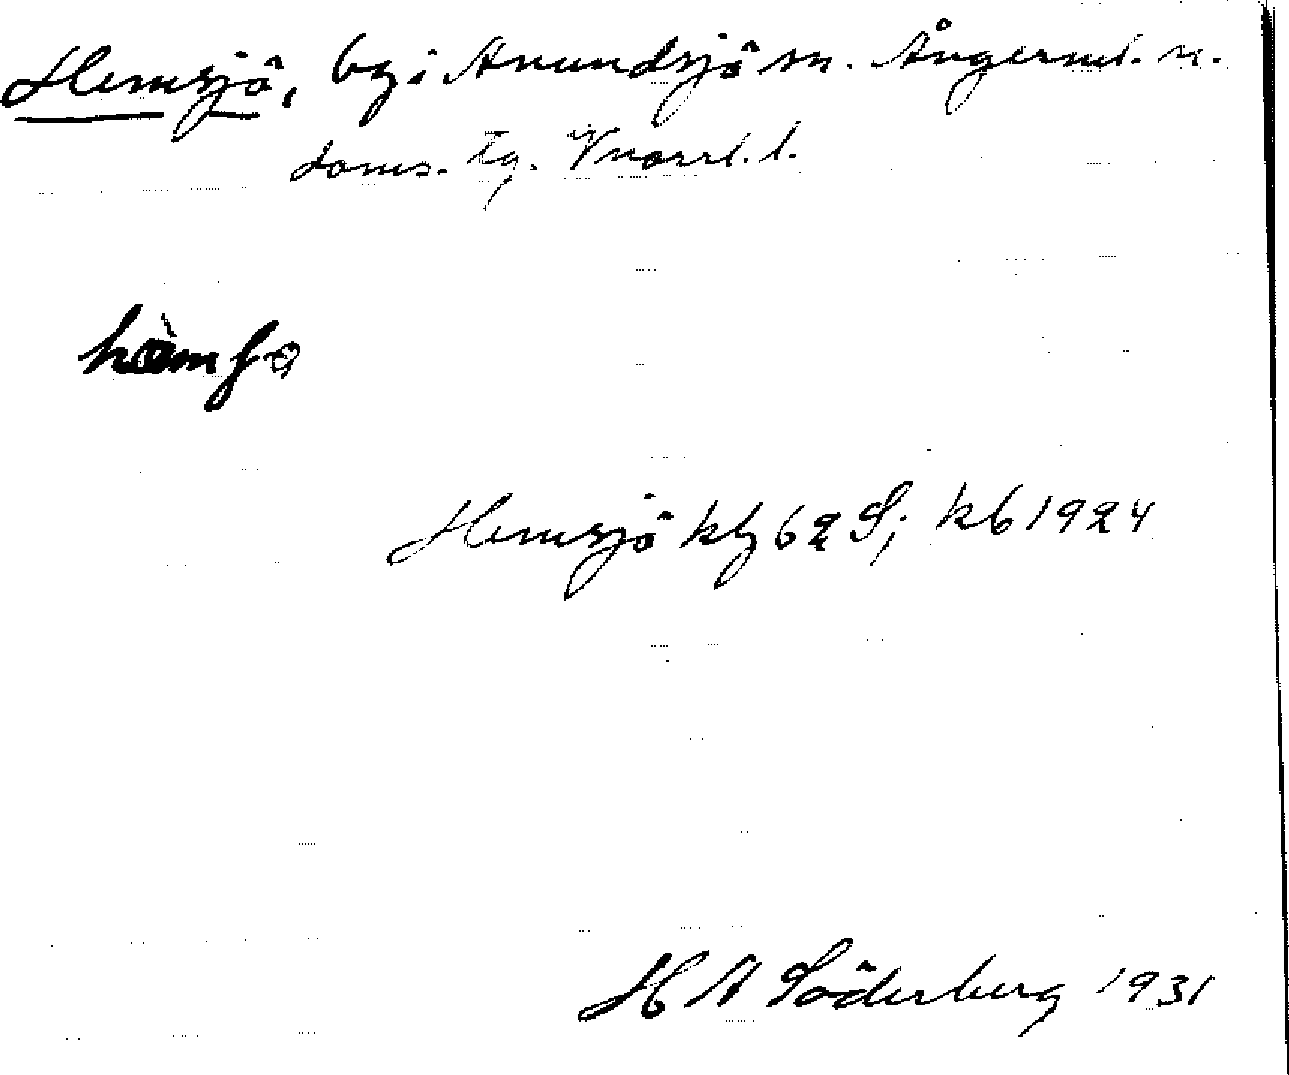 Hemsjö, by i Anundsjö sn. Ångerml. n.
doms. tg. Vnorrl. l.
Hemsjö kbg 62 S; kb 1924
H A Söderberg 1931